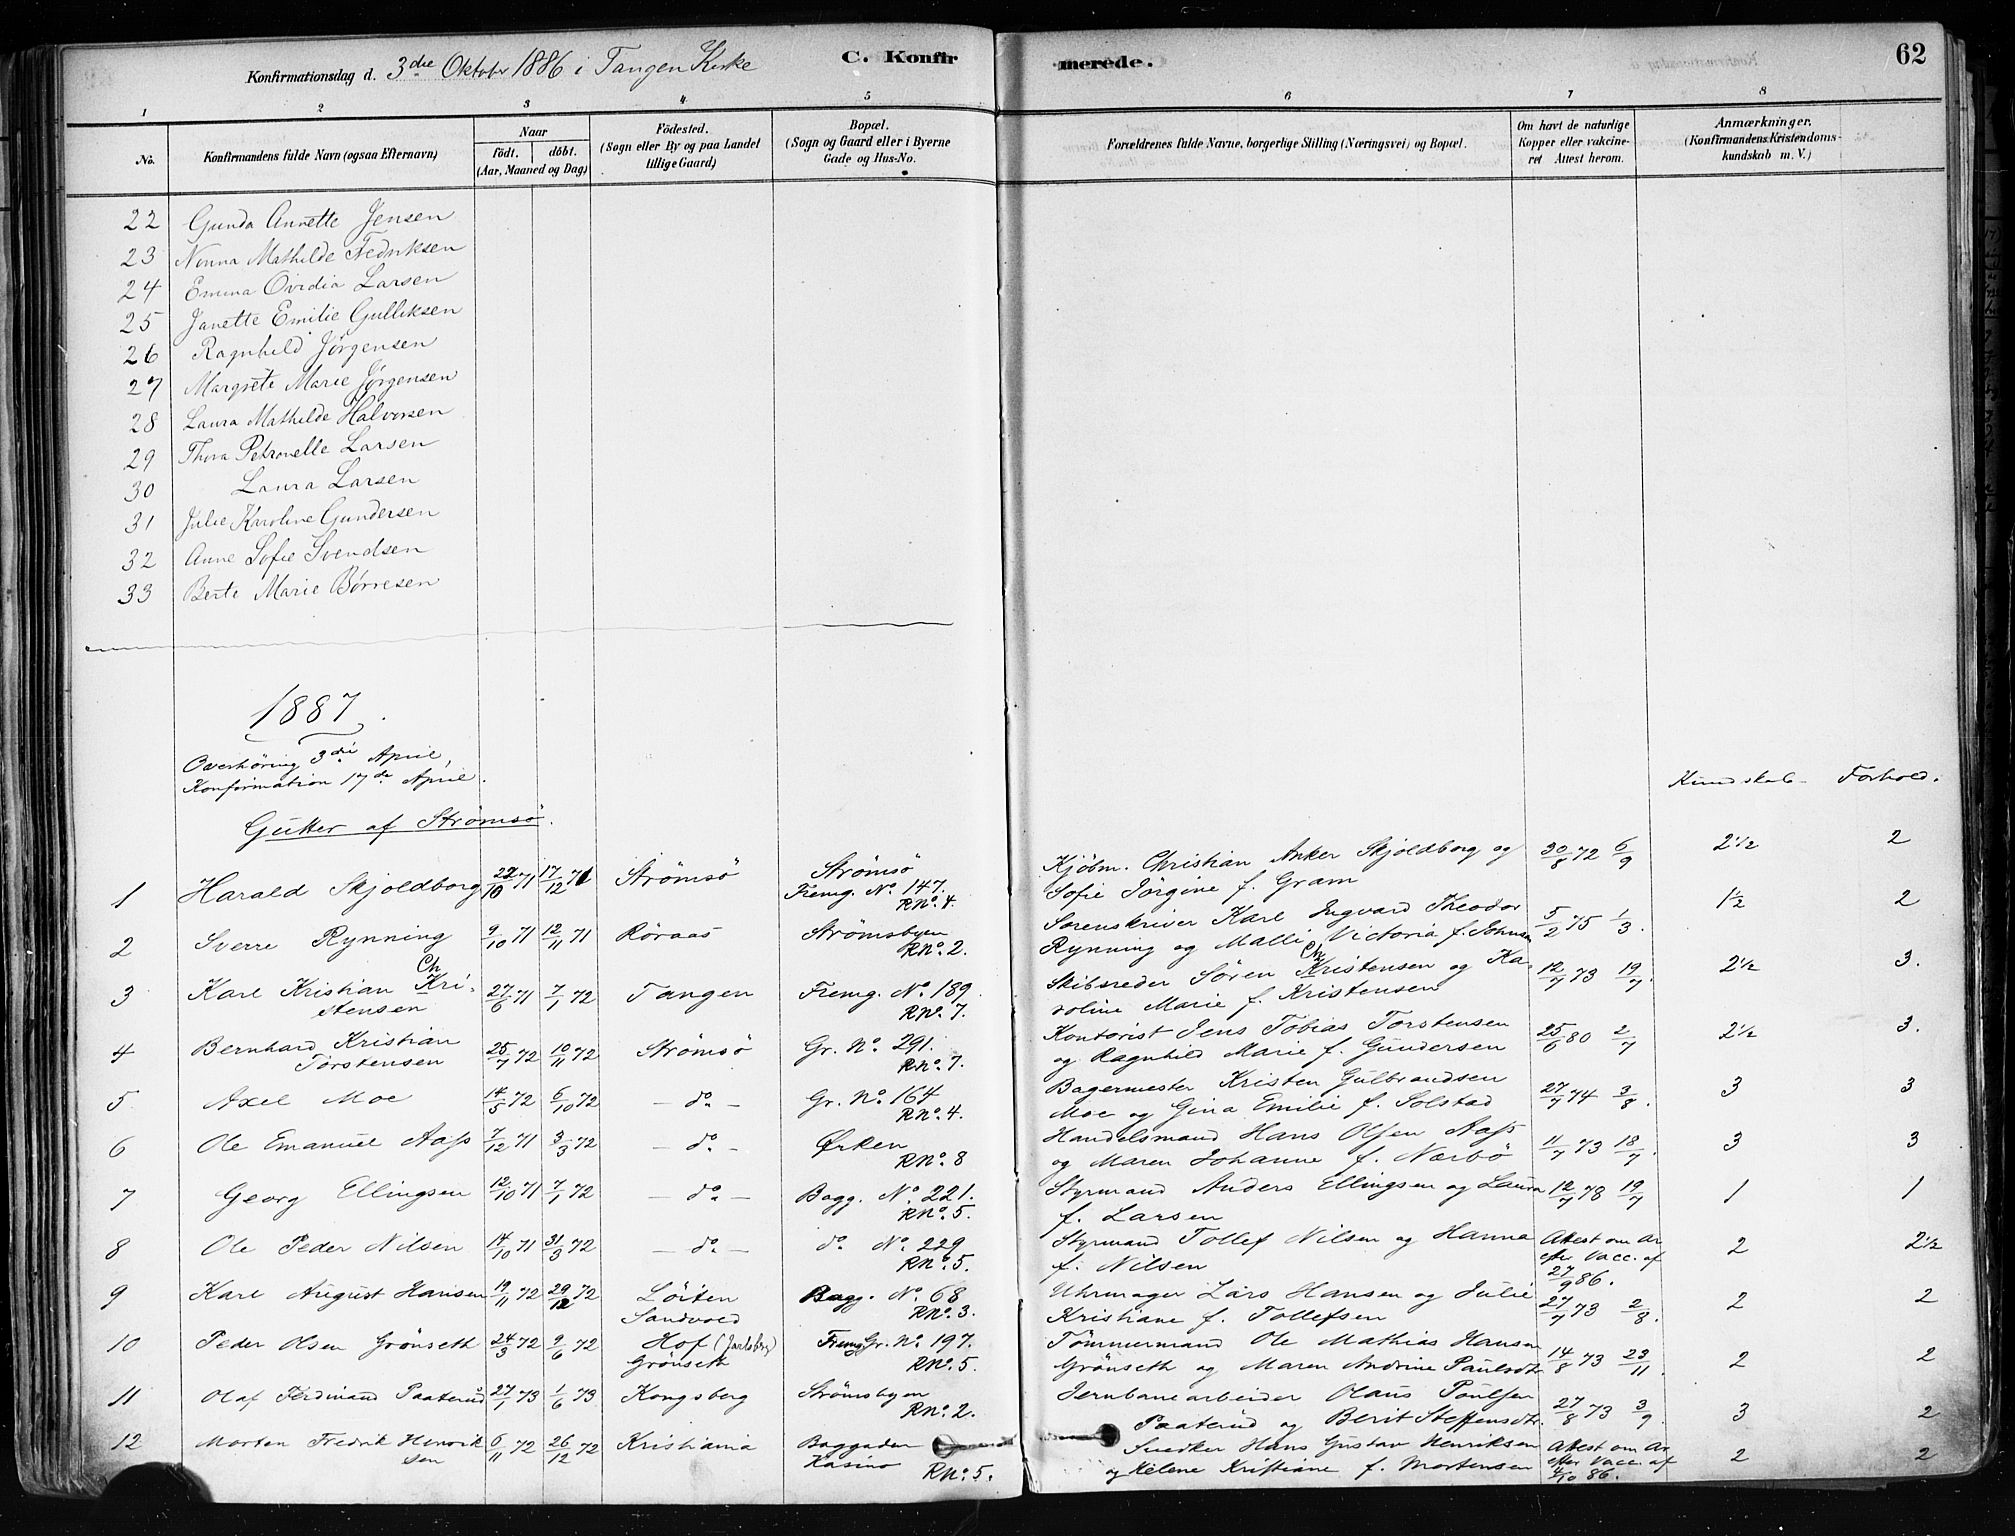 Konfirmationsdag d. 3die Oktober 1886 i Tangen Kirke
C. Konfirmerede.
62
1 2 3 4 5 6 7 8
No.
Konfirmandens fulde Navn (ogsaa Efternavn)
Naar
Födt. döbt.
(Aar, Maaned og Dag)
Födested.
(Sogn eller By og paa Landet
tillige Gaard)
Bopæl.
(Sogn og Gaard eller i Byerne
Gade og Hus-No.
Forældrenes fulde Navne, borgerlige Stilling (Næringsvei) og Bopæl.
Om havt de naturlige
Kopper eller vakcine-
ret Attest herom.
Anmærkninger.
(Konfirmandens Kristendoms-
kundskab m. V.)
22 Gunda Annette Jensen
23 Nonna Mathilde Fedriksen
24 Emma Ovidia Larsen
25 Janette Emilie Gulliksen
26 Ragnhild Jørgensen
27 Margrete Marie Jørgensen
28 Laura Mathilde Halvorsen
29 Thora Petronelle Larsen
30 Laura Larsen
31 Julie Karoline Gundersen
32 Anne Sofie Svendsen
33 Berte Marie Börresen
1887.
Overhöring 3die April,
Konfirmation 17de April.
Kundskab Forhold.
Gutter af Strömsö.
1 Harald Skjoldborg 22/10 71 17/12 71 Strömsö Strömsö Fremg. No. 147. RNo. 4. Kjöbm. Christian Anker Skjoldborg og 30/8 72 6/9 2 1/2 2
Sofie Jörgine f. Gram
2 Sverre Rynning 9/10 71 12/11 71 Röraas Strömsbyen RNo. 2. Sorenskriver Karl Ingvard Theodor 5/2 75 1/3. 1 1/2 2
Rynning og Malli Victoria f. Johnsen
3 Karl Kristian Ch Kri- 27/6 71 7/1 72 Tangen Fremg. No. 189. RNo. 7. Skibsreder Sören Ch Kristensen og Ka- 12/7 73 19/7. 2 1/2 3.
stensen roline Marie f. Kristensen
4 Bernhard Kristian 25/7 72 10/11 72 Strömsö Gr. No. 291. RNo. 7. Kontorist Jens Tobias Torstensen 25/6 80 2/7 2 1/2 3.
Torstensen og Ragnhild Marie f. Gundersen
5 Axel Moe 14/5 72 6/10 72 – do. – Gr. No. 164 RNo. 4. Bagermester Kristen Gulbrandsen 27/7 74 3/8. 3 3
Moe og Gina Emilie f. Solstad
6 Ole Emanuel Aass 7/12 71 3/3 72 – do. – Ørken RNo. 8 Handelsmand Hans Olsen Aass 11/7 73 18/7. 3 3
og Maren Johanne f. Nærbö
7 Georg Ellingsen 12/10 71 7/1 72 – do. – Bagg. No. 221. RNo. 5. Styrmand Anders Ellingsen og Laura 12/7 78 19/7 1 1
f. Larsen
8 Ole Peder Nilsen 14/10 71 31/3 72 – do. – do. No. 229 RNo. 5. Styrmand Tollef Nilsen og Hanna Attest om Ar 2 2 1/2
f. Nilsen efter Vacc. af 27/9 86.
9 Karl August Hansen 19/11 72 29/12 72 Löiten Sandvold Bagg. No. 68 RNo. 3. Uhrmager Lars Hansen og Julie 27/7 73 2/8. 2 2
Kristiane f. Tollefsen
10 Peder Olsen Grönseth 24/3 72 9/6 72 Hof (Jarlsberg) Grönseth Fremg Gr. No. 197. RNo. 5. Tömmermand Ole Mathias Hansen 14/8 73 23/11. 2 2
Grönseth og Maren Andrine Paulsdtr
11 Olaf Ferdinand Paaterud 27/1 73 1/6 73 Kongsberg Strömsbyen RNo. 2. Jernbanearbeider Olaus Poulsen 27/8 73 3/9. 3 2
Paaterud og Berit Steffensdtr.
12 Morten Fredrik Henrik 6/11 72 26/12 72 Kristiania Baggaden Kasino RNo. 5. Snedker Hans Gustav Henriksen Attest om Ar 2 2
sen og Helene Kristiane f. Mortensen efter Vacc. af 4/10 86.